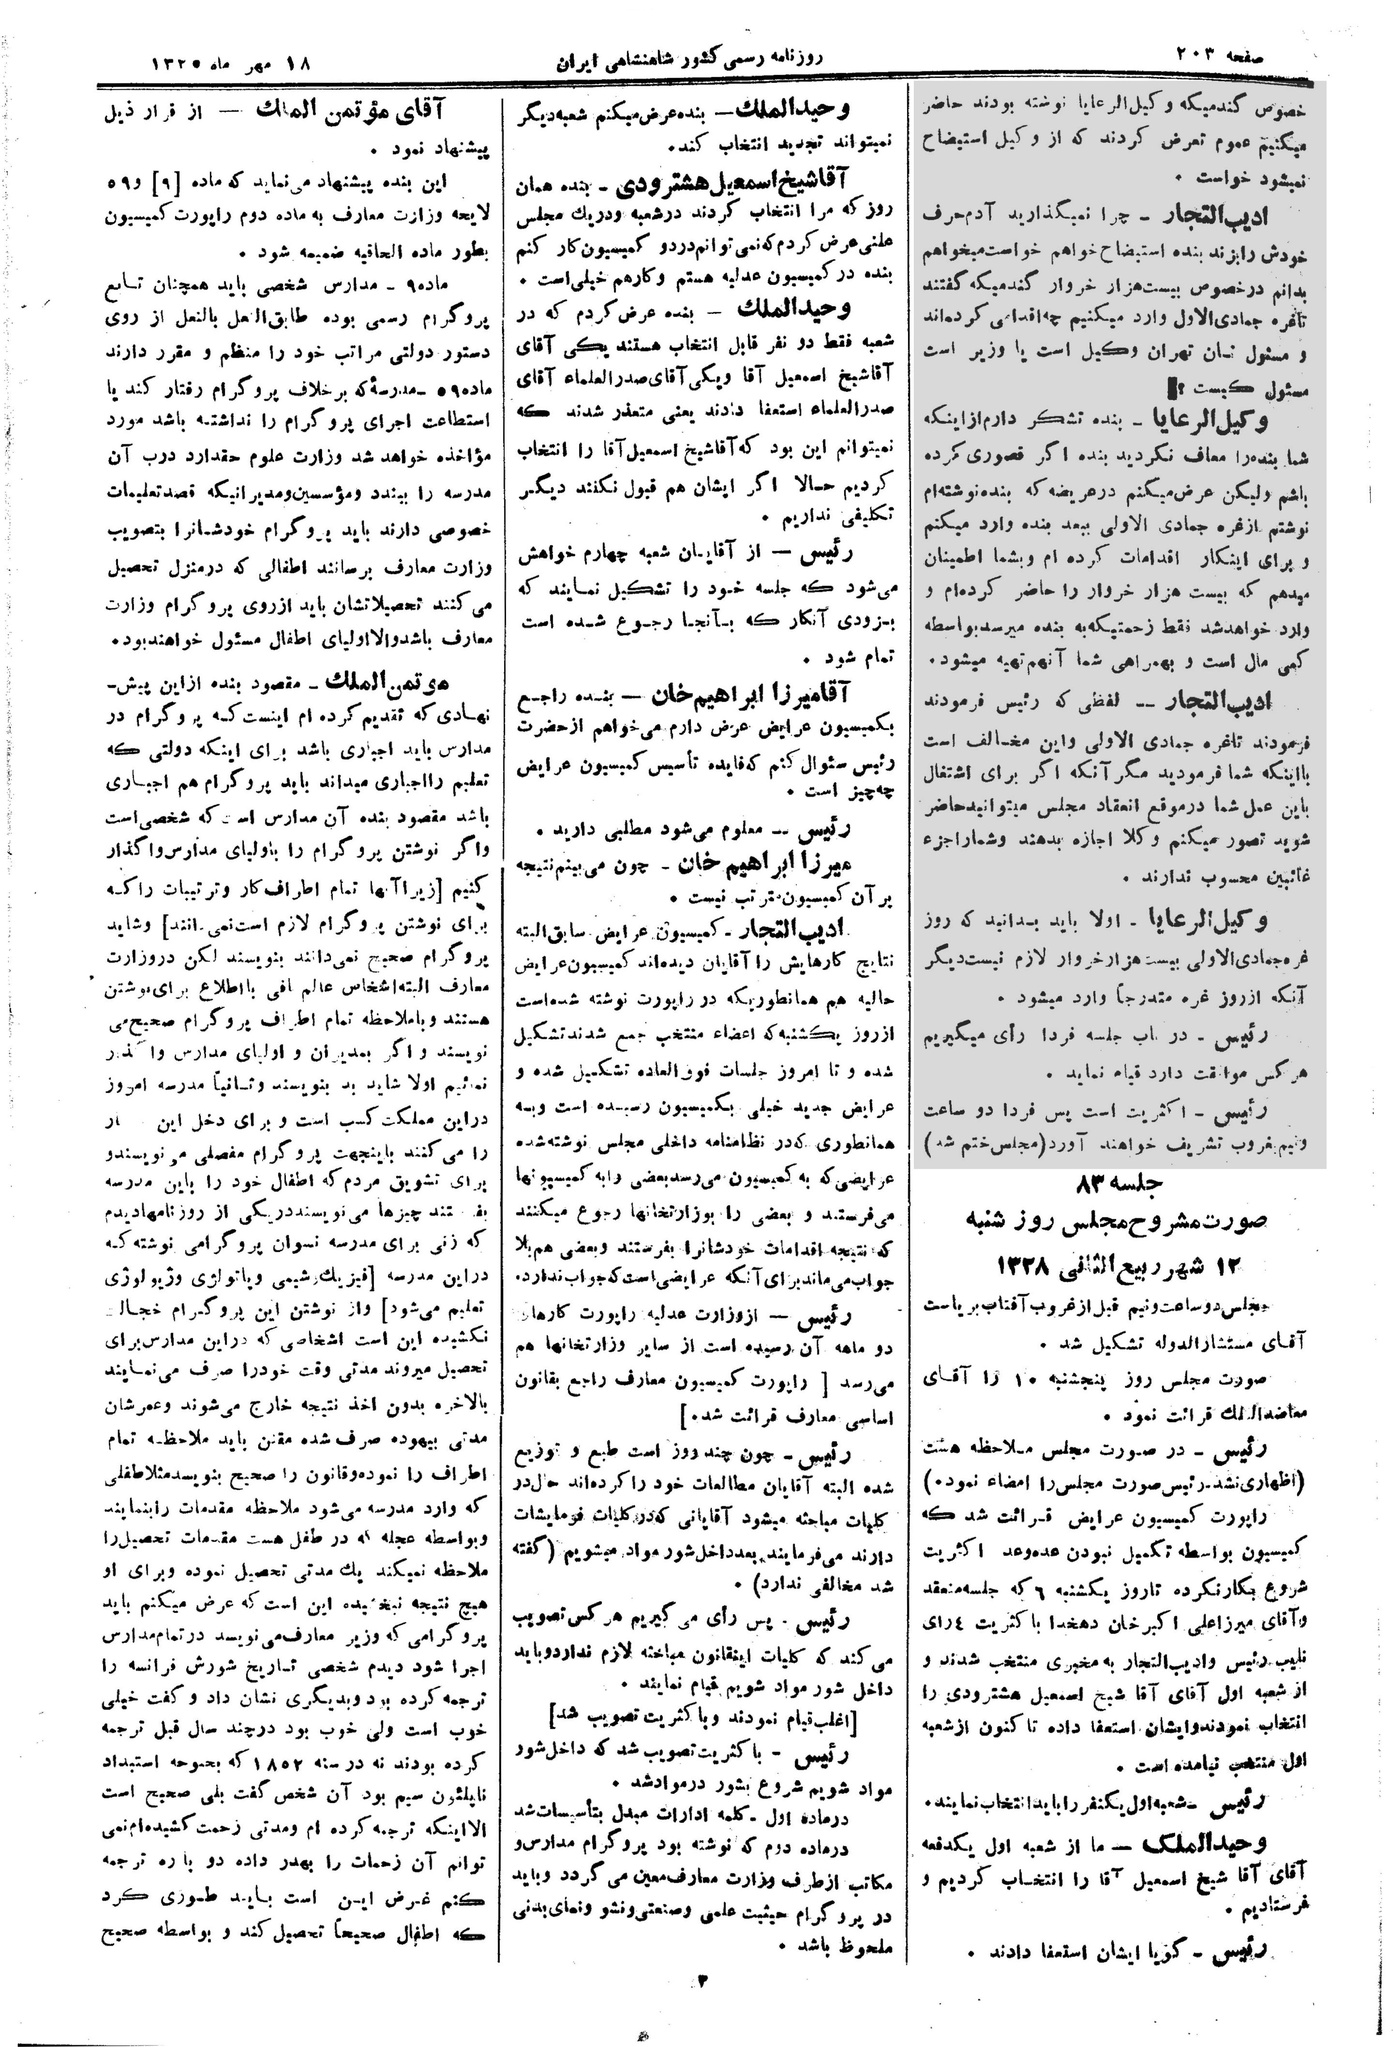 صفحه ۲۰۳
روزنامه رسمی کشور شاهنشاهی ایران
۱۸ مهر ماه ۱۳۲۵
خصوص گندمیکه وکیل‌الرعایا نوشته بودند حاضر
میکنیم عموم تعرض کردند که از وکیل استیضاح
نمیشود خواست .
ادیب‌التجار - چرا نمیگذارید آدم‌حرف
خودش را بزند بنده استیضاح خواهم خواست میخواهم
بدانم درخصوص بیست‌هزار خروار گندمیکه گفتند
تاغره جمادی‌الاول وارد میکنیم چه‌اقدامی کرده‌اند
و مسئول نان تهران وکیل است یا وزیر است
مسئول کیست ؟
وکیل‌الرعایا - بنده تشکر دارم از اینکه
شما بنده را معاف نکردید بنده اگر قصوری کرده
باشم ولیکن عرض میکنم درعریضه که بنده نوشته‌ام
نوشتم ازغره جمادی الاولی ببعد بنده وارد میکنم
و برای اینکار اقدامات کرده ام وبشما اطمینان
میدهم که بیست هزار خروار را حاضر کرده‌ام و
وارد خواهدشد فقط زحمتیکه به بنده میرسد بواسطه
کمی مال است و بهمراهی شما آنهم تهیه میشود.
ادیب‌التجار -- لفظی که رئیس فرمودند
فرمودند تاغره جمادی الاولی واین مخالف است
بااینکه شما فرمودید مگر آنکه اگر برای اشتغال
باین عمل شما درموقع انعقاد مجلس میتوانید حاضر
شوید تصور میکنم وکلا اجازه بدهند وشمارا جزء
غائبین محسوب ندارند .
وکیل‌الرعایا - اولا باید بدانید که روز
غره جمادی‌الاولی بیست هزار خروار لازم نیست دیگر
آنکه ازروز غره متدرجاً وارد میشود .
رئیس - در باب جلسه فردا رأی میگیریم
هر کس موافقت دارد قیام نماید .
رئیس - اکثریت است پس فردا دو ساعت
ونیم بغروب تشریف خواهند آورد (مجلس ختم شد)
جلسه ۸۳
صورت مشروح مجلس روز شنبه
۱۲ شهر ربیع الثانی ۱۳۲۸
مجلس دوساعت ونیم قبل از غروب آفتاب بریاست
آقای مستشارالدوله تشکیل شد .
صورت مجلس روز پنجشنبه ۱۰ را آقای
معاضدالملك قرائت نمود .
رئیس - در صورت مجلس ملاحظه هست
(اظهاری نشد رئیس صورت مجلس را امضاء نمود.)
راپورت کمیسیون عرایض قرائت شد که
کمیسیون بواسطه تکمیل نبودن عده وعد اکثریت
شروع بکار نکرده تاروز یکشنبه ۶ که جلسه منعقد
وآقای میرزاعلی اکبر خان دهخدا با کثریت ٤ رای
نایب رئیس وادیب‌التجار به مخبری منتخب شدند و
از شعبه اول آقای آقا شیخ اسمعیل هشترودی را
انتخاب نمودند وایشان استعفا داده تا کنون از شعبه
اول منتخب نیامده است .
رئیس - شعبه اول یکنفر را باید انتخاب نمایند.
وحیدالملک - ما از شعبه اول یکدفعه
آقای آقا شیخ اسمعیل آقا را انتخاب کردیم و
فرستادیم .
رئیس - گویا ایشان استعفا دادند .
وحیدالملك - بنده عرض میکنم شعبه دیگر
نمیتواند تجدید انتخاب کند.
آقا شیخ اسمعیل هشترودی - بنده همان
روز که مرا انتخاب کردند درشعبه ودریك مجلس
علنی عرض کردم که نمی‌توانم دردو کمیسیون کار کنم
بنده در کمیسیون عدلیه هستم و کارهم خیلی است .
وحیدالملك - بنده عرض کردم که در
شعبه فقط دو نفر قابل انتخاب هستند یکی آقای
آقاشیخ اسمعیل آقا ویکی آقای صدرالعلماء آقای
صدرالعلماء استعفا دادند یعنی متعذر شدند که
نمیتوانم این بود که آقاشیخ اسمعیل آقا را انتخاب
کردیم حالا اگر ایشان هم قبول نکنند دیگر
تکلیفی نداریم .
رئیس - از آقایان شعبه چهارم خواهش
می‌شود که جلسه خود را تشکیل نمایند که
بزودی آنکار که بآنجا رجوع شده است
تمام شود .
آقا میرزا ابراهیم خان - بنده راجع
بکمیسیون عرایض عرض دارم می‌خواهم از حضرت
رئیس سئوال کنم که فایده تأسیس کمیسیون عرایض
چه چیز است .
رئیس -- معلوم می‌شود مطلبی دارید .
میرزا ابراهیم خان - چون می‌بینم نتیجه
بر آن کمیسیون مترتب نیست .
ادیب‌التجار - کمیسیون عرایض سابق البته
نتایج کارهایش را آقایان دیده‌اند کمیسیون عرایض
حالیه هم همانطوریکه در راپورت نوشته شده است
از روز یکشنبه که اعضاء منتخب جمع شدند تشکیل
شده و تا امروز جلسات فوق‌العاده تشکیل شده و
عرایض جدید خیلی بکمیسیون رسیده است و به
همانطوری که در نظامنامه داخلی مجلس نوشته شده
عرایضی که به کمیسیون می‌رسد بعضی را به کمیسیونها
می‌فرستند و بعضی را بوزارتخانها رجوع میکنند
که نتیجه اقدامات خودشانرا بفرستند وبعضی هم بلا
جواب می‌ماند برای آنکه عرایضی است که جواب ندارد.
رئیس - از وزارت عدلیه راپورت کارهای
دو ماهه آن رسیده است از سایر وزارتخانها هم
می‌رسد [ راپورت کمیسیون معارف راجع بقانون
اساسی معارف قرائت شد.]
رئیس - چون چند روز است طبع و توزیع
شده البته آقایان مطالعات خود را کرده‌اند حال در
کلیات مباحثه میشود آقایانی که در کلیات فرمایشات
دارند می‌فرمایند بعد داخل شور مواد میشویم (گفته
شد مخالفی ندارد) .
رئیس - پس رأی می گیریم هر کس تصویب
می کند که کلیات اینقانون مباحثه لازم ندارد و باید
داخل شور مواد شویم قیام نمایند .
[اغلب قیام نمودند و با کثریت تصویب شد]
رئیس - با کثریت تصویب شد که داخل شور
مواد شویم شروع بشور درموادشد .
درماده اول - کلمه ادارات مبدل بتأسیسات شد
درماده دوم که نوشته بود پروگرام مدارس و
مکاتب ازطرف وزارت معارف معین می گردد وباید
در پروگرام حیثیت علمی وصنعتی ونشو ونمای بدنی
ملحوظ باشد .
آقای مؤتمن الملك - از قرار ذیل
پیشنهاد نمود .
این بنده پیشنهاد می‌نماید که ماده [۹] و ۵۹
لایحه وزارت معارف به ماده دوم راپورت کمیسیون
بطور ماده الحاقیه ضمیمه شود .
ماده۹ - مدارس شخصی باید همچنان تابع
پروگرام رسمی بوده طابق‌النعل بالنعل از روی
دستور دولتی مراتب خود را منظم و مقرر دارند
ماده ۵۹ - مدرسهٔ که برخلاف پروگرام رفتار کند یا
استطاعت اجرای پروگرام را نداشته باشد مورد
مؤاخذه خواهد شد وزارت علوم حقدارد درب آن
مدرسه را ببندد ومؤسسین ومدیرانیکه قصدتعلیمات
خصوصی دارند باید پروگرام خودشانرا بتصویب
وزارت معارف برسانند اطفالی که درمنزل تحصیل
می کنند تحصیلاتشان باید ازروی پروگرام وزارت
معارف باشد والا اولیای اطفال مسئول خواهند بود.
مؤتمن الملك - مقصود بنده ازاین پیش-
نهادی که تقدیم کرده ام اینست که پروگرام در
مدارس باید اجباری باشد برای اینکه دولتی که
تعلیم را اجباری میداند باید پروگرام هم اجباری
باشد مقصود بنده آن مدارس است که شخصی است
واگر نوشتن پروگرام را باولیای مدارس واگذار
کنیم [زیرا آنها تمام اطراف کار وترتیبات را که
برای نوشتن پروگرام لازم است نمی‌دانند] وشاید
پروگرام صحیح نمی‌دانند بنویسند لکن دروزارت
معارف البته اشخاص عالم کافی بااطلاع برای نوشتن
هستند وباملاحظه تمام اطراف پروگرام صحیح می
نویسند و اگر بمدیران و اولیای مدارس واگذار
نمائیم اولا شاید بد بنویسند وثانیاً مدرسه امروز
دراین مملکت کسب است و برای دخل این کار
را می کنند باینجهت پروگرام مفصلی می نویسند و
برای تشویق مردم که اطفال خود را باین مدرسه
بفرستند چیزها می‌نویسند دریکی از روزنامها دیدم
که زنی برای مدرسه نسوان پروگرامی نوشته که
دراین مدرسه [فیزیك، شیمی وپاتولژی وژیولوژی
تعلیم می‌شود] واز نوشتن این پروگرام خجالت
نکشیده این است اشخاصی که دراین مدارس برای
تحصیل میروند مدتی وقت خودرا صرف می‌نمایند
بالاخره بدون اخذ نتیجه خارج می‌شوند وعمرشان
مدتی بیهوده صرف شده مقنن باید ملاحظه تمام
اطراف را نموده وقانون را صحیح بنویسد مثلا طفلی
که وارد مدرسه می‌شود ملاحظه مقدمات را بنمایند
وبواسطه عجله که در طفل هست مقدمات تحصیل را
ملاحظه نمیکند یك مدتی تحصیل نموده وبرای او
هیچ نتیجه نبخشیده این است که عرض میکنم باید
پروگرامی که وزیر معارف می‌نویسد در تمام مدارس
اجرا شود دیدم شخصی تاریخ شورش فرانسه را
ترجمه کرده بود وبدیگری نشان داد و گفت خیلی
خوب است ولی خوب بود درچند سال قبل ترجمه
کرده بودند نه در سنه ۱۸۵۲ که بحبوحه استبداد
ناپلئون سیم بود آن شخص گفت بلی صحیح است
الا اینکه ترجمه کرده ام ومدتی زحمت کشیده‌ام نمی
توانم آن زحمات را بهدر داده دو باره ترجمه
کنم غرض این است باید طوری کرد
که اطفال صحیحاً تحصیل کند و بواسطه صحیح
۳